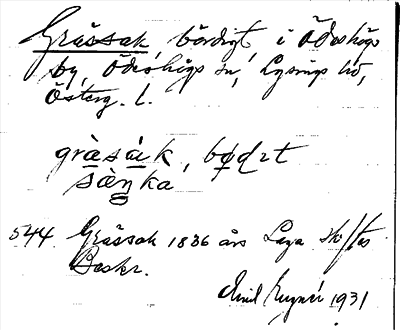 Gråssak, bördigt, i Ödeshögs
by, Ödeshögs sn, Lysings hd,
Österg. l.
gràsàk, bødɩt
sàŋka
544. Gråssak 1836 års Laga
Beskr.
Emil 1931